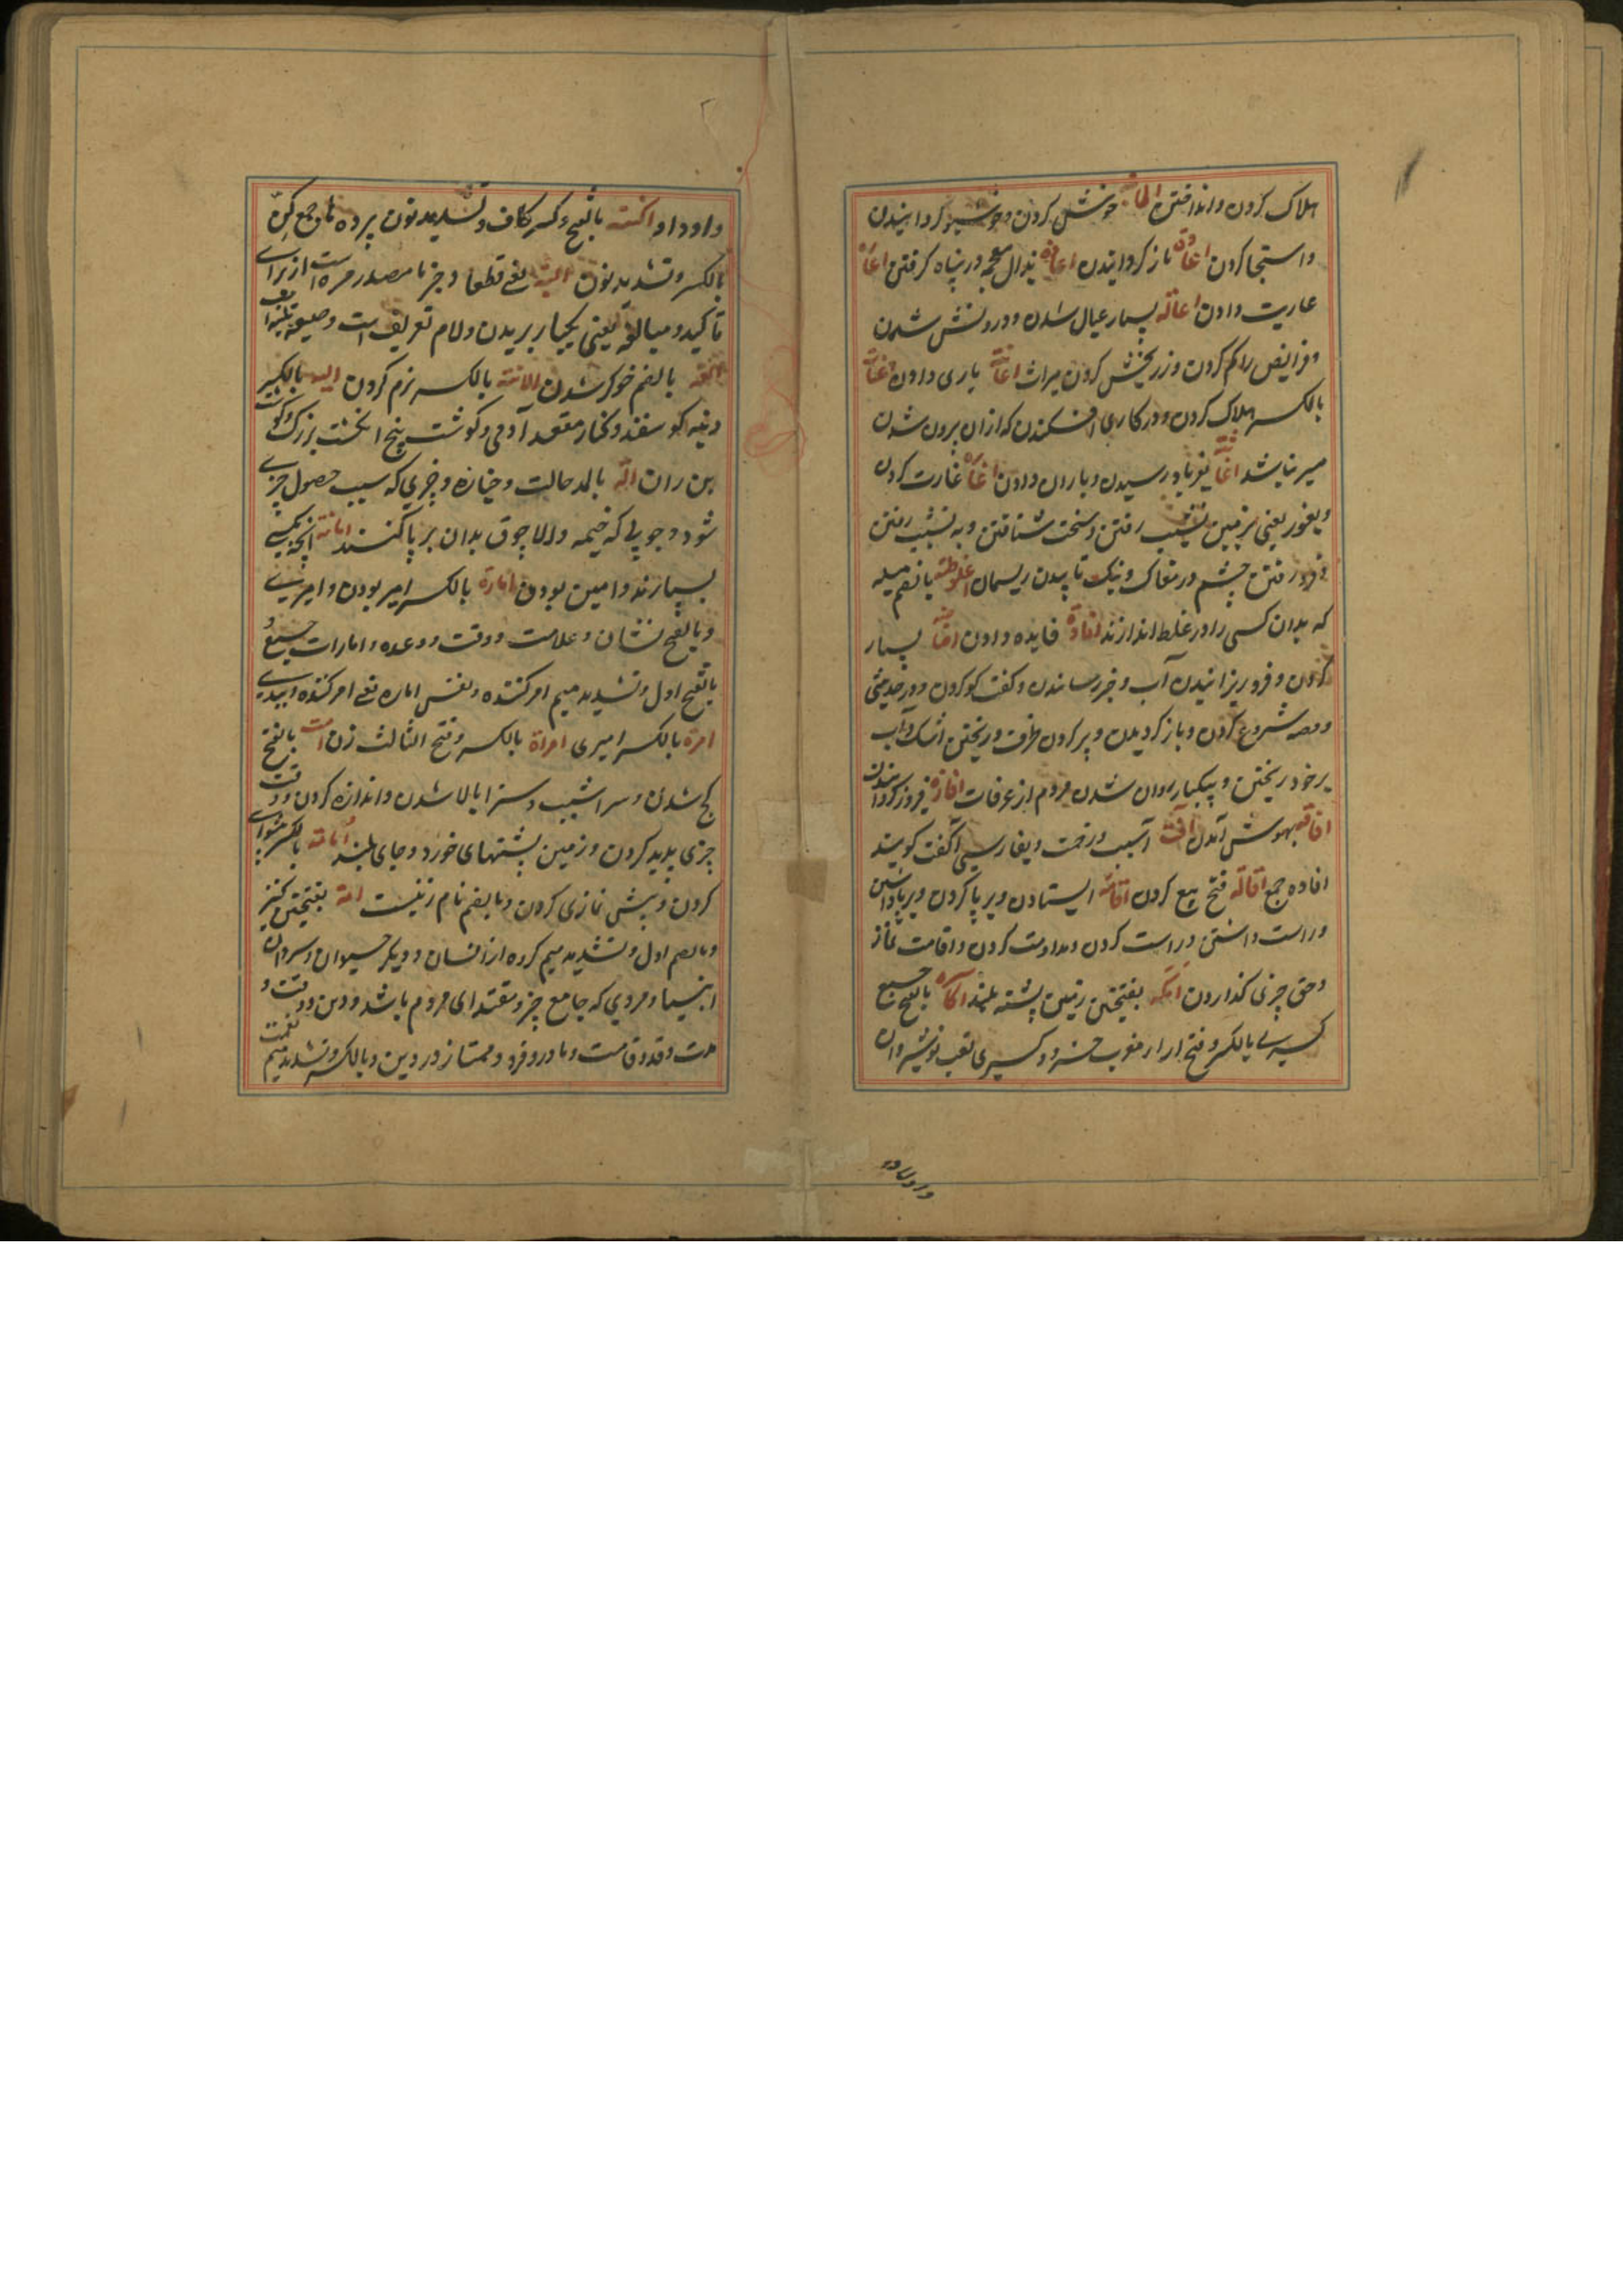 هلاک کردن و انداختن خوش کردن و خوشبو کردانیدن
و استنجا کردن اعاده باز کردانیدن اعاذه بذال معجمه در پناه کرفتن اعاره
عاریت دادن اعاله بسیار عیال شدن و درویش شدن
و فرایض را کم کردن و زر بخش کردن میراث اعانة یاری دادن
بالکسر هلاک کردن و در کاری افکندن که ازان برون شدن
میسر نباشد اغاثه بفریاد رسیدن و باران دادن اغاره غارت کردن
و بغور یعنی بزمین نشیب رفتن و سخت شتافتن و به نشیب رفتن
و فرو رفتن چشم در مغاک و نیک تابیدن ریسمان اغلوطه بالضم مسله
که بدان کسی را در غلط اندازند افاده فایده دادن افاضه بسیار
کردن و فرو ریزانیدن آب و خبر رسانیدن و کفت کو کردن و در حدیثی
و قصه شروع کردن و باز کردیدن و پر کردن ظرف و ریختن اشک و آب
بر خود ریختن و بیکبار روان شدن مردم از عرفات افازه فیروز کردانیدن
افاقه بهوش آمدن آفت آسیب و زحمت و بفارسی آکفت کویند
افاده جمع اقاله فسخ بیع کردن اقامه ایستادن و بر پا کردن و بر پا داشتن
و راست داشتن و راست کردن و مداومت کردن و اقامت نماز
و حق چیزی کذاردن اکمه بفتحتین زمین پشته بلند اکاسره بالفتح جمع
کسری بالکسر و فتح را معرب خسرو و کسری لقب نوشیروان
داود او اکنه بالفتح و کسر کاف و تشدید نون پرده ها و جمع کن
بالکسر و تشدید نون البته یعنی قطعا و جزما مصدر مره است از برای
تاکید و مبالغه یعنی یکبار بریدن و لام تعریف است و
الفة بالضم خوکر شدن الانة بالکسر نرم کردن الیه بالکسر
دنبه کوسفند و کنار مقعد آدمی و کوشت بیخ انکشت بزرک و کوشت
بن ران آلة بالمد حالت و جنازه و چیزی که سبب حصول چیزی
شود و چوبی که خیمه و الاچوق بدان بر پا کنند امانة آنچه بکسی
بسپارند و امین بودن امارة بالکسر امیر بودن و امیری
و بالفتح نشان و علامت و وقت و وعده و امارات جمع و
بالفتح اول و تشدید میم امر کننده و نفس اماره یعنی امر کننده ببدی
امرة بالکسر امیری امراة بالکسر و فتح الثالث زن امت بالفتح
کج شدن و سراشیب و سرابالا شدن و اندازه کردن وقت
چیزی پدید کردن و زمین پشتهای خورد و جای بلند امامه بالکسر پیشوائی
کردن و پیش نمازی کردن و بالضم نام زنیست امة بفتحتین کنیز
و بالضم اول و تشدید میم کروه از انسان و دیکر حیوان و پیروان
انبیا و مردی که جامع خیر و مقتدای مردم باشد و دین و وقت و
مدت و قد و قامت و مادر و فرد و ممتاز در دین و بالکسر و تشدید میم نعمت